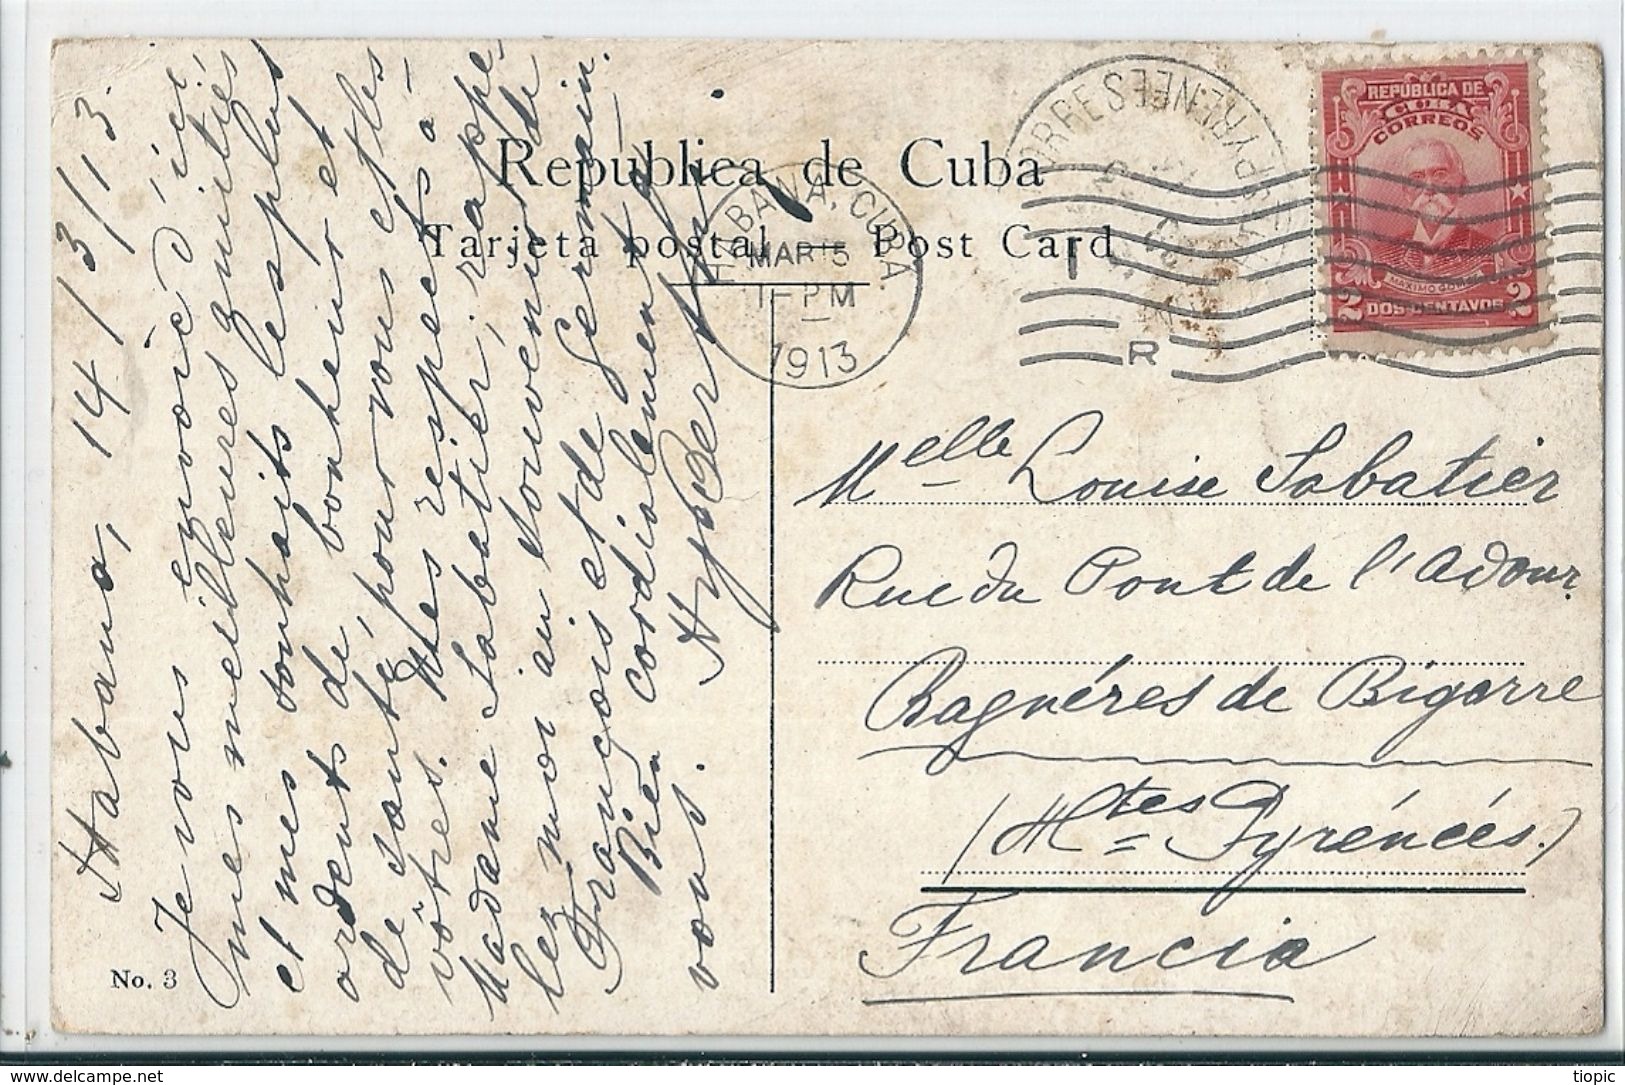 Republica de Cuba
Tarjeta postal — Post Card
HABANA, CUBA
MAR 15
1-PM
1913
R
REPÚBLICA DE
CUBA
CORREOS
MAXIMO GOMEZ
2 DOS CENTAVOS 2
Habana, 14/3/13.
Je vous envoie d'ici
mes meilleures amitiés
et mes souhaits les plus
ardents de bonheur et
de santé, pour vous et les
vôtres. Mes respects à
Madame Sabatier; rappe
lez moi au souvenir de
François et de Germain.
Bien cordialement à
vous.
Melle Louise Sabatier
Rue du Pont de l'Adour
Bagnéres de Bigorre
(Htes Pyrénées.)
Francia
No. 3
tiopic